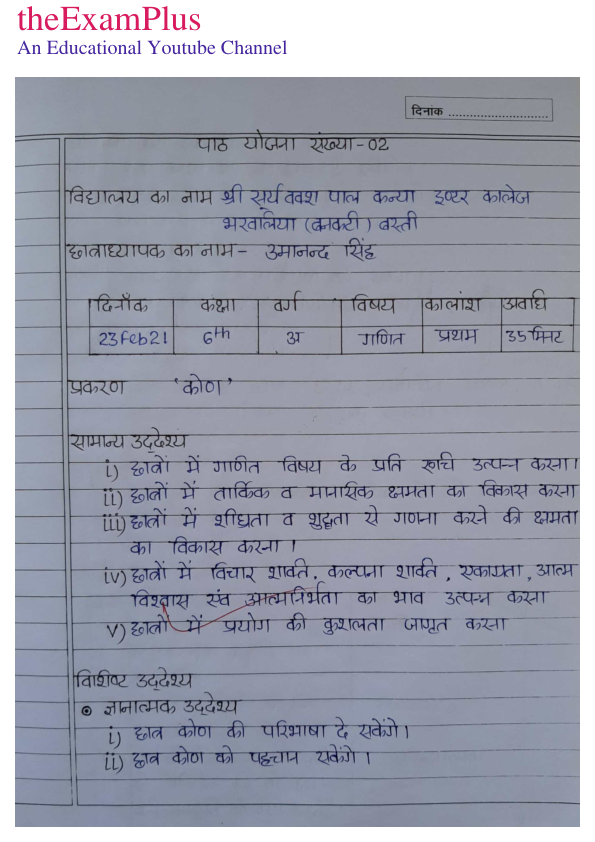 theExamPlus
An Educational Youtube Channel
दिनांक ............................
पाठ योजना संख्या-02
विद्यालय का नाम श्री सूर्य बक्श पाल कन्या इण्टर कालेज
भरवलिया (बनकटी) बस्ती
छात्राध्यापक का नाम- उमानन्द सिंह
दिनाँक कक्षा वर्ग विषय कालांश अवधि
23Feb21 6th अ गणित प्रथम 35 मिनट
प्रकरण 'कोण'
सामान्य उद्देश्य
i) छात्रों में गणित विषय के प्रति रूचि उत्पन्न करना।
ii) छात्रों में तार्किक व मानसिक क्षमता का विकास करना
iii) छात्रों में शीघ्रता व शुद्धता से गणना करने की क्षमता
का विकास करना।
iv) छात्रों में विचार शक्ति, कल्पना शक्ति, एकाग्रता, आत्म
विश्वास एंव आत्मनिर्भता का भाव उत्पन्न करना
v) छात्रों में प्रयोग की कुशलता जागृत करना
विशिष्ट उद्देश्य
⊙ ज्ञानात्मक उद्देश्य
i) छात्र कोण की परिभाषा दे सकेंगे।
ii) छात्र कोण को पहचान सकेंगे।